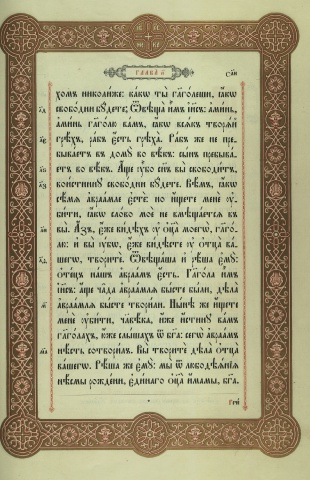 ГЛАВА̀ И҃
хомъ николи́же: ка́кѡ ты̀ гл҃го́леши, ꙗ҆́кѡ
свобо́дни бꙋ́дете; Ѿвѣща̀ и҆̀мъ і҆и҃съ: а҆ми́нь,
а҆ми́нь гл҃го́лю ва́мъ, ꙗ҆́кѡ всѧ́къ творѧ́й
грѣ́хъ, ра́бъ є҆́сть грѣха̀. Ра́бъ же не пре-
быва́етъ въ домꙋ̀ во вѣ́къ: сы́нъ пребыва́-
етъ во вѣ́къ. А҆́ще ᲂу҆̀бо сн҃ъ вы̀ свободи́тъ,
вои́стиннꙋ свобо́дни бꙋ́дете. Вѣ́мъ, ꙗ҆́кѡ
сѣ́мѧ а҆враа́мле є҆стѐ: но и҆́щете менѐ ᲂу҆-
би́ти, ꙗ҆́кѡ сло́во моѐ не вмѣща́етсѧ въ
вы̀. А҆́зъ, є҆́же ви́дѣхъ ᲂу҆ ѻ҆ц҃а̀ моегѡ̀, гл҃го́-
лю: и҆ вы̀ ᲂу҆́бѡ, є҆́же ви́дѣсте ᲂу҆ ѻ҆тца̀ ва́-
шегѡ̀, творитѐ. Ѿвѣща́ша и҆ рѣ́ша є҆мꙋ̀:
ѻ҆те́цъ на́шъ а҆враа́мъ є҆́сть. Гл҃го́ла и҆̀мъ
і҆и҃съ: а҆́ще ча̑да а҆враа̑млѧ бы́сте бы́ли, дѣла̀
а҆враа̑млѧ бы́сте твори́ли. Нн҃ѣ же и҆́щете
менѐ ᲂу҆би́ти, чл҃вѣ́ка, и҆́же и҆́стинꙋ ва́мъ
гл҃го́лахъ, ю҆́же слы́шахъ ѿ бг҃а: сегѡ̀ а҆враа́мъ
нѣ́сть сотвори́лъ. Вы̀ творитѐ дѣла̀ ѻ҆тца̀
ва́шегѡ̀. Рѣ́ша же є҆мꙋ̀: мы̀ ѿ любодѣѧ́нїѧ
нѣ́смы рожде́ни, є҆ди́наго ѻ҆ц҃а̀ и҆́мамы, бг҃а.